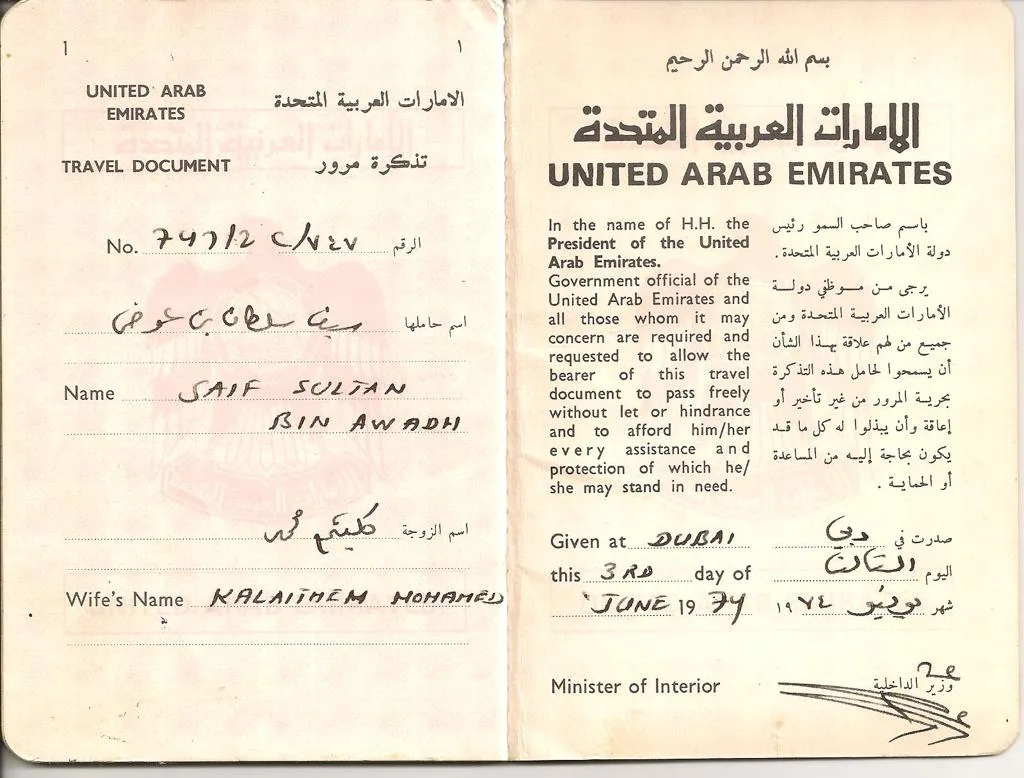 1
١
UNITED ARAB
EMIRATES
الامارات العربية المتحدة
TRAVEL DOCUMENT
تذكرة مرور
No. 747/2 ٧٤٧/ الرقم
اسم حاملها سيف سلطان بن عوض
Name SAIF SULTAN
BIN AWADH
اسم الزوجة كليثم محمد
Wife's Name KALAITHEM MOHAMED
بسم الله الرحمن الرحيم
الامارات العربية المتحدة
UNITED ARAB EMIRATES
In the name of H.H. the
President of the United
Arab Emirates.
Government official of the
United Arab Emirates and
all those whom it may
concern are required and
requested to allow the
bearer of this travel
document to pass freely
without let or hindrance
and to afford him/her
every assistance and
protection of which he/
she may stand in need.
باسم صاحب السمو رئيس
دولة الأمارات العربية المتحدة .
يرجى من موظفي دولة
الأمارات العربية المتحدة ومن
جميع من لهم علاقة بهذا الشأن
أن يسمحوا لحامل هذه التذكرة
بحرية المرور من غير تأخير أو
إعاقة وأن يبذلوا له كل ما قد
يكون بحاجة إليه من المساعدة
أو الحماية .
Given at DUBAI
صدرت في دبي
this 3RD day of
اليوم الثالث
JUNE 1974
شهر يونيو ١٩٧٤
Minister of Interior
وزير الداخلية